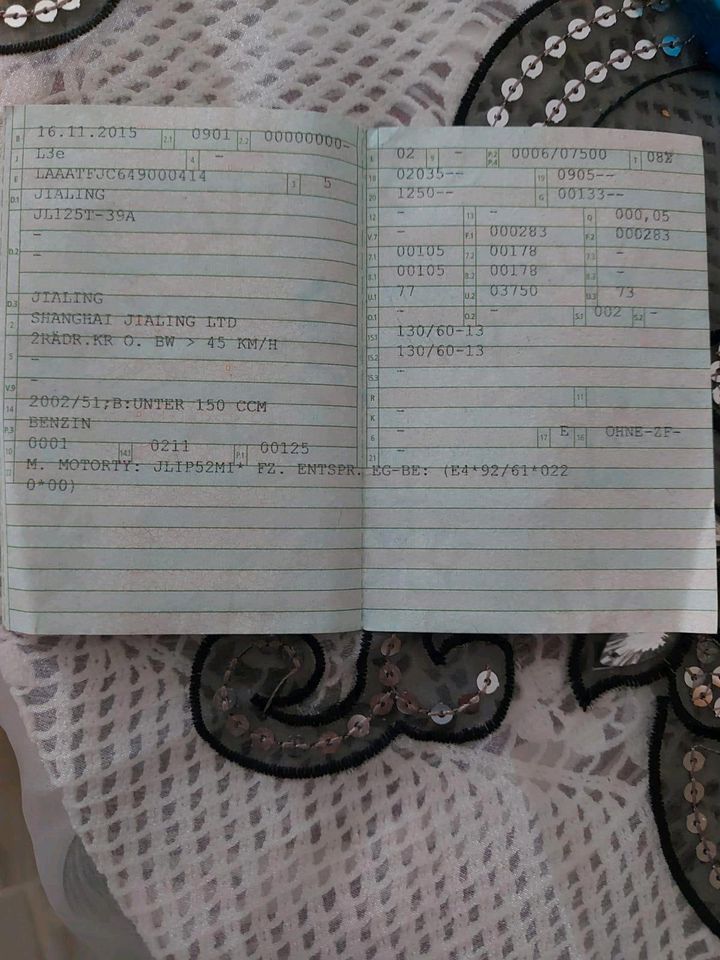 B 16.11.2015 2.1 0901 2.2 00000000-
J L3e 4 -
E LAAATFJC649000414 3 5
D.1 JIALING
JL125T-39A
-
D.2 -
D.3 JIALING
2 SHANGHAI JIALING LTD
2RÄDR.KR O. BW > 45 KM/H
5 -
-
V.9
14 2002/51;B:UNTER 150 CCM
P.3 BENZIN
10 0001 14.1 0211 P.1 00125
22 M. MOTORTY: JL1P52MI* FZ. ENTSPR. EG-BE: (E4*92/61*022
0*00)
L 02 9 - P.2 P.4 0006/07500 T 08
18 02035-- 19 0905--
20 1250-- G 00133--
12 - 13 - Q 000,05
V.7 - F.1 000283 F.2 000283
7.1 00105 7.2 00178 7.3 -
8.1 00105 8.2 00178 8.3 -
U.1 77 U.2 03750 U.3 73
O.1 - O.2 - S.1 002 S.2 -
15.1 130/60-13
15.2 130/60-13
15.3 -
R 11
K -
6 - 17 E 16 OHNE-ZF-
21 -